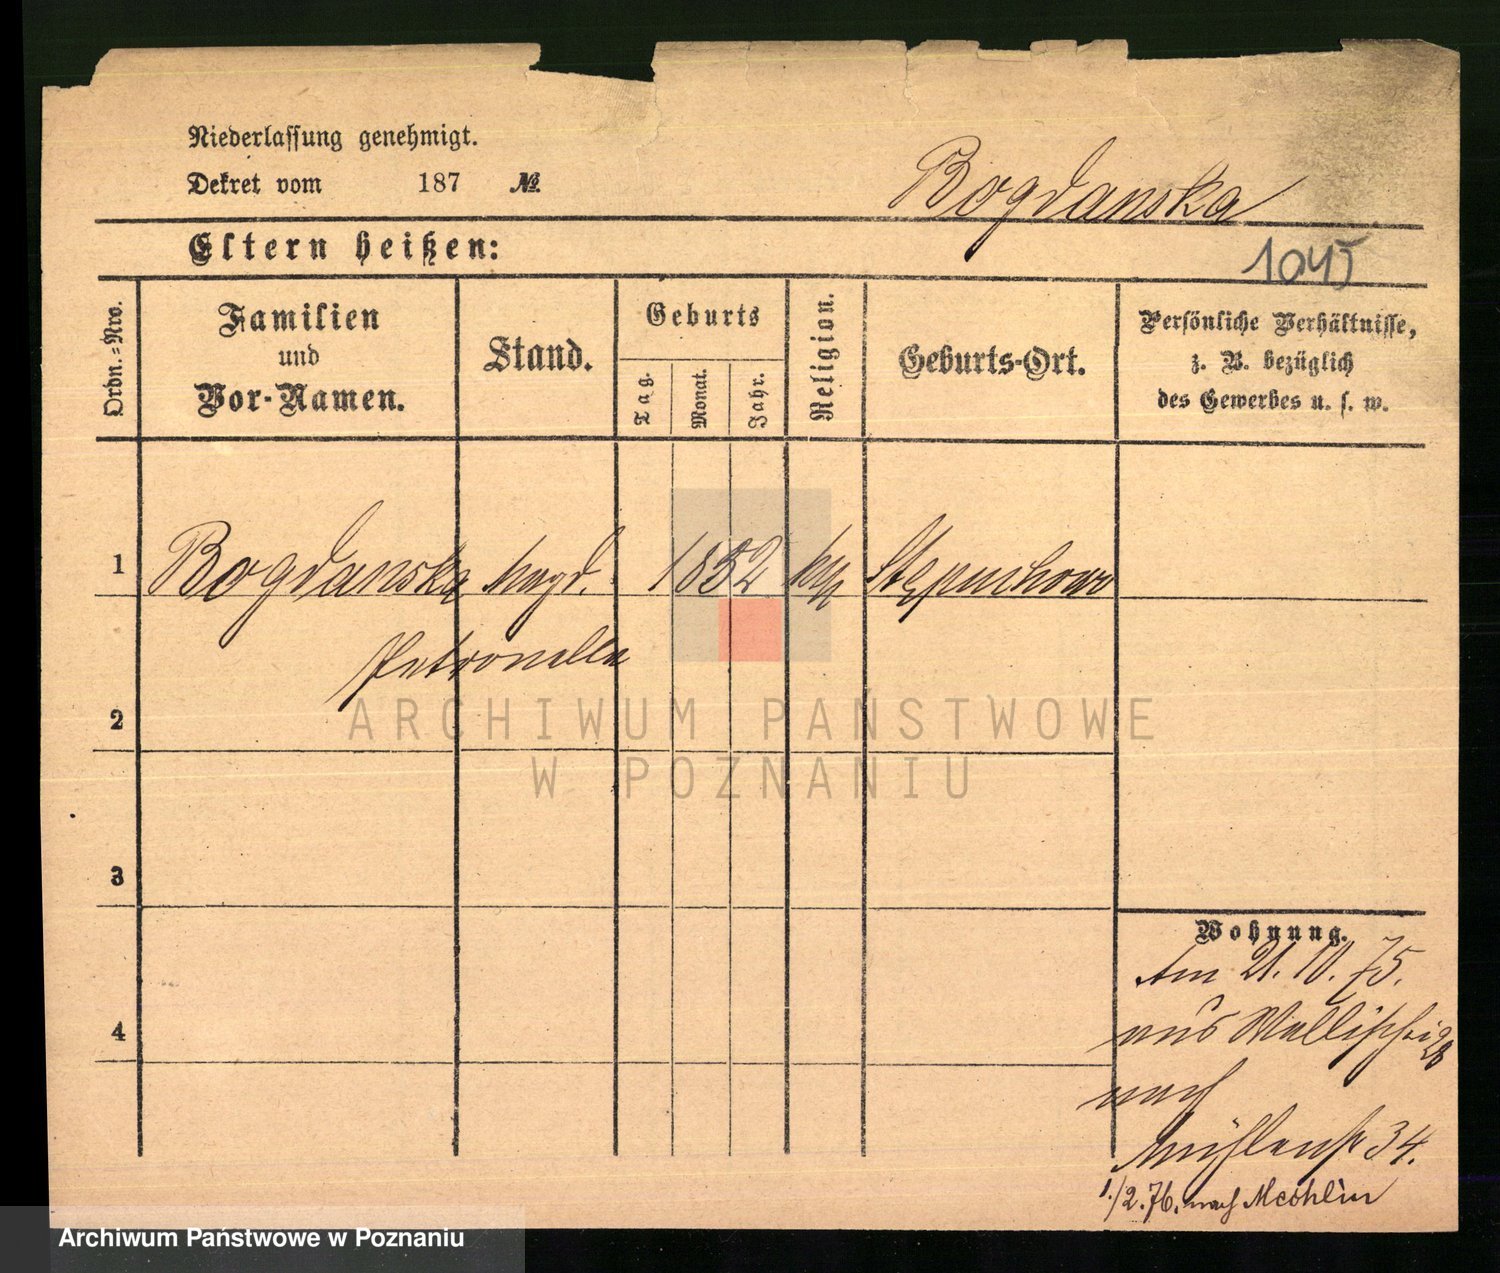 Niederlassung genehmigt.
Dekret vom 187 №
Bogdanska
Eltern heißen:
1045
Ordn.-Nro.
Familien
und
Vor-Namen.
Stand.
Geburts
Tag.
Monat.
Jahr.
Religion.
Geburts-Ort.
Persönliche Verhältnisse,
z. B. bezüglich
des Gewerbes u. s. w.
1 Bogdanska Magd. 1852 Stępuchowo
Petronella
2
3
4
Wohnung.
Am 21. 10. 75.
aus Wallischei 28
nach
Mühlenstr 34.
1./2.76. nach Mechlin
ARCHIWUM PAŃSTWOWE
W POZNANIU
Archiwum Państwowe w Poznaniu